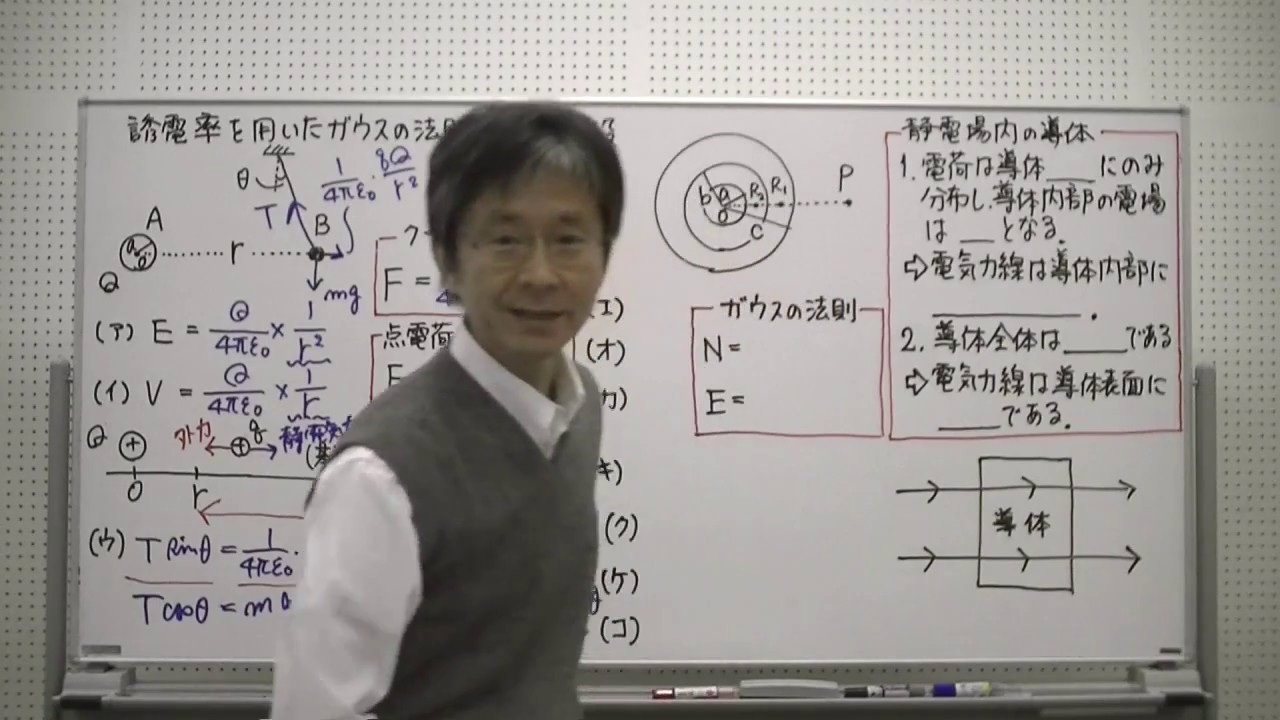 誘電率を用いたガウスの法
θ
1/4πε₀・qQ/r²
T
A
B
a
O
r
Q
mg
ク
F =
(ア) E = Q/4πε₀ × 1/r²
点電荷
E
(イ) V = Q/4πε₀ × 1/r
Q
+
外力
+
q
静電気力
O
r
(ウ) T sinθ = 1/4πε₀・
T cosθ = m
(エ)
(オ)
(カ)
(キ)
(ク)
(ケ)
(コ)
a
b
c
O
R₂
R₁
P
ガウスの法則
N =
E =
静電場内の導体
1. 電荷は導体___にのみ
分布し、導体内部の電場
は __ となる。
⇨電気力線は導体内部に
________.
2. 導体全体は____である
⇨電気力線は導体表面に
____である。
導体